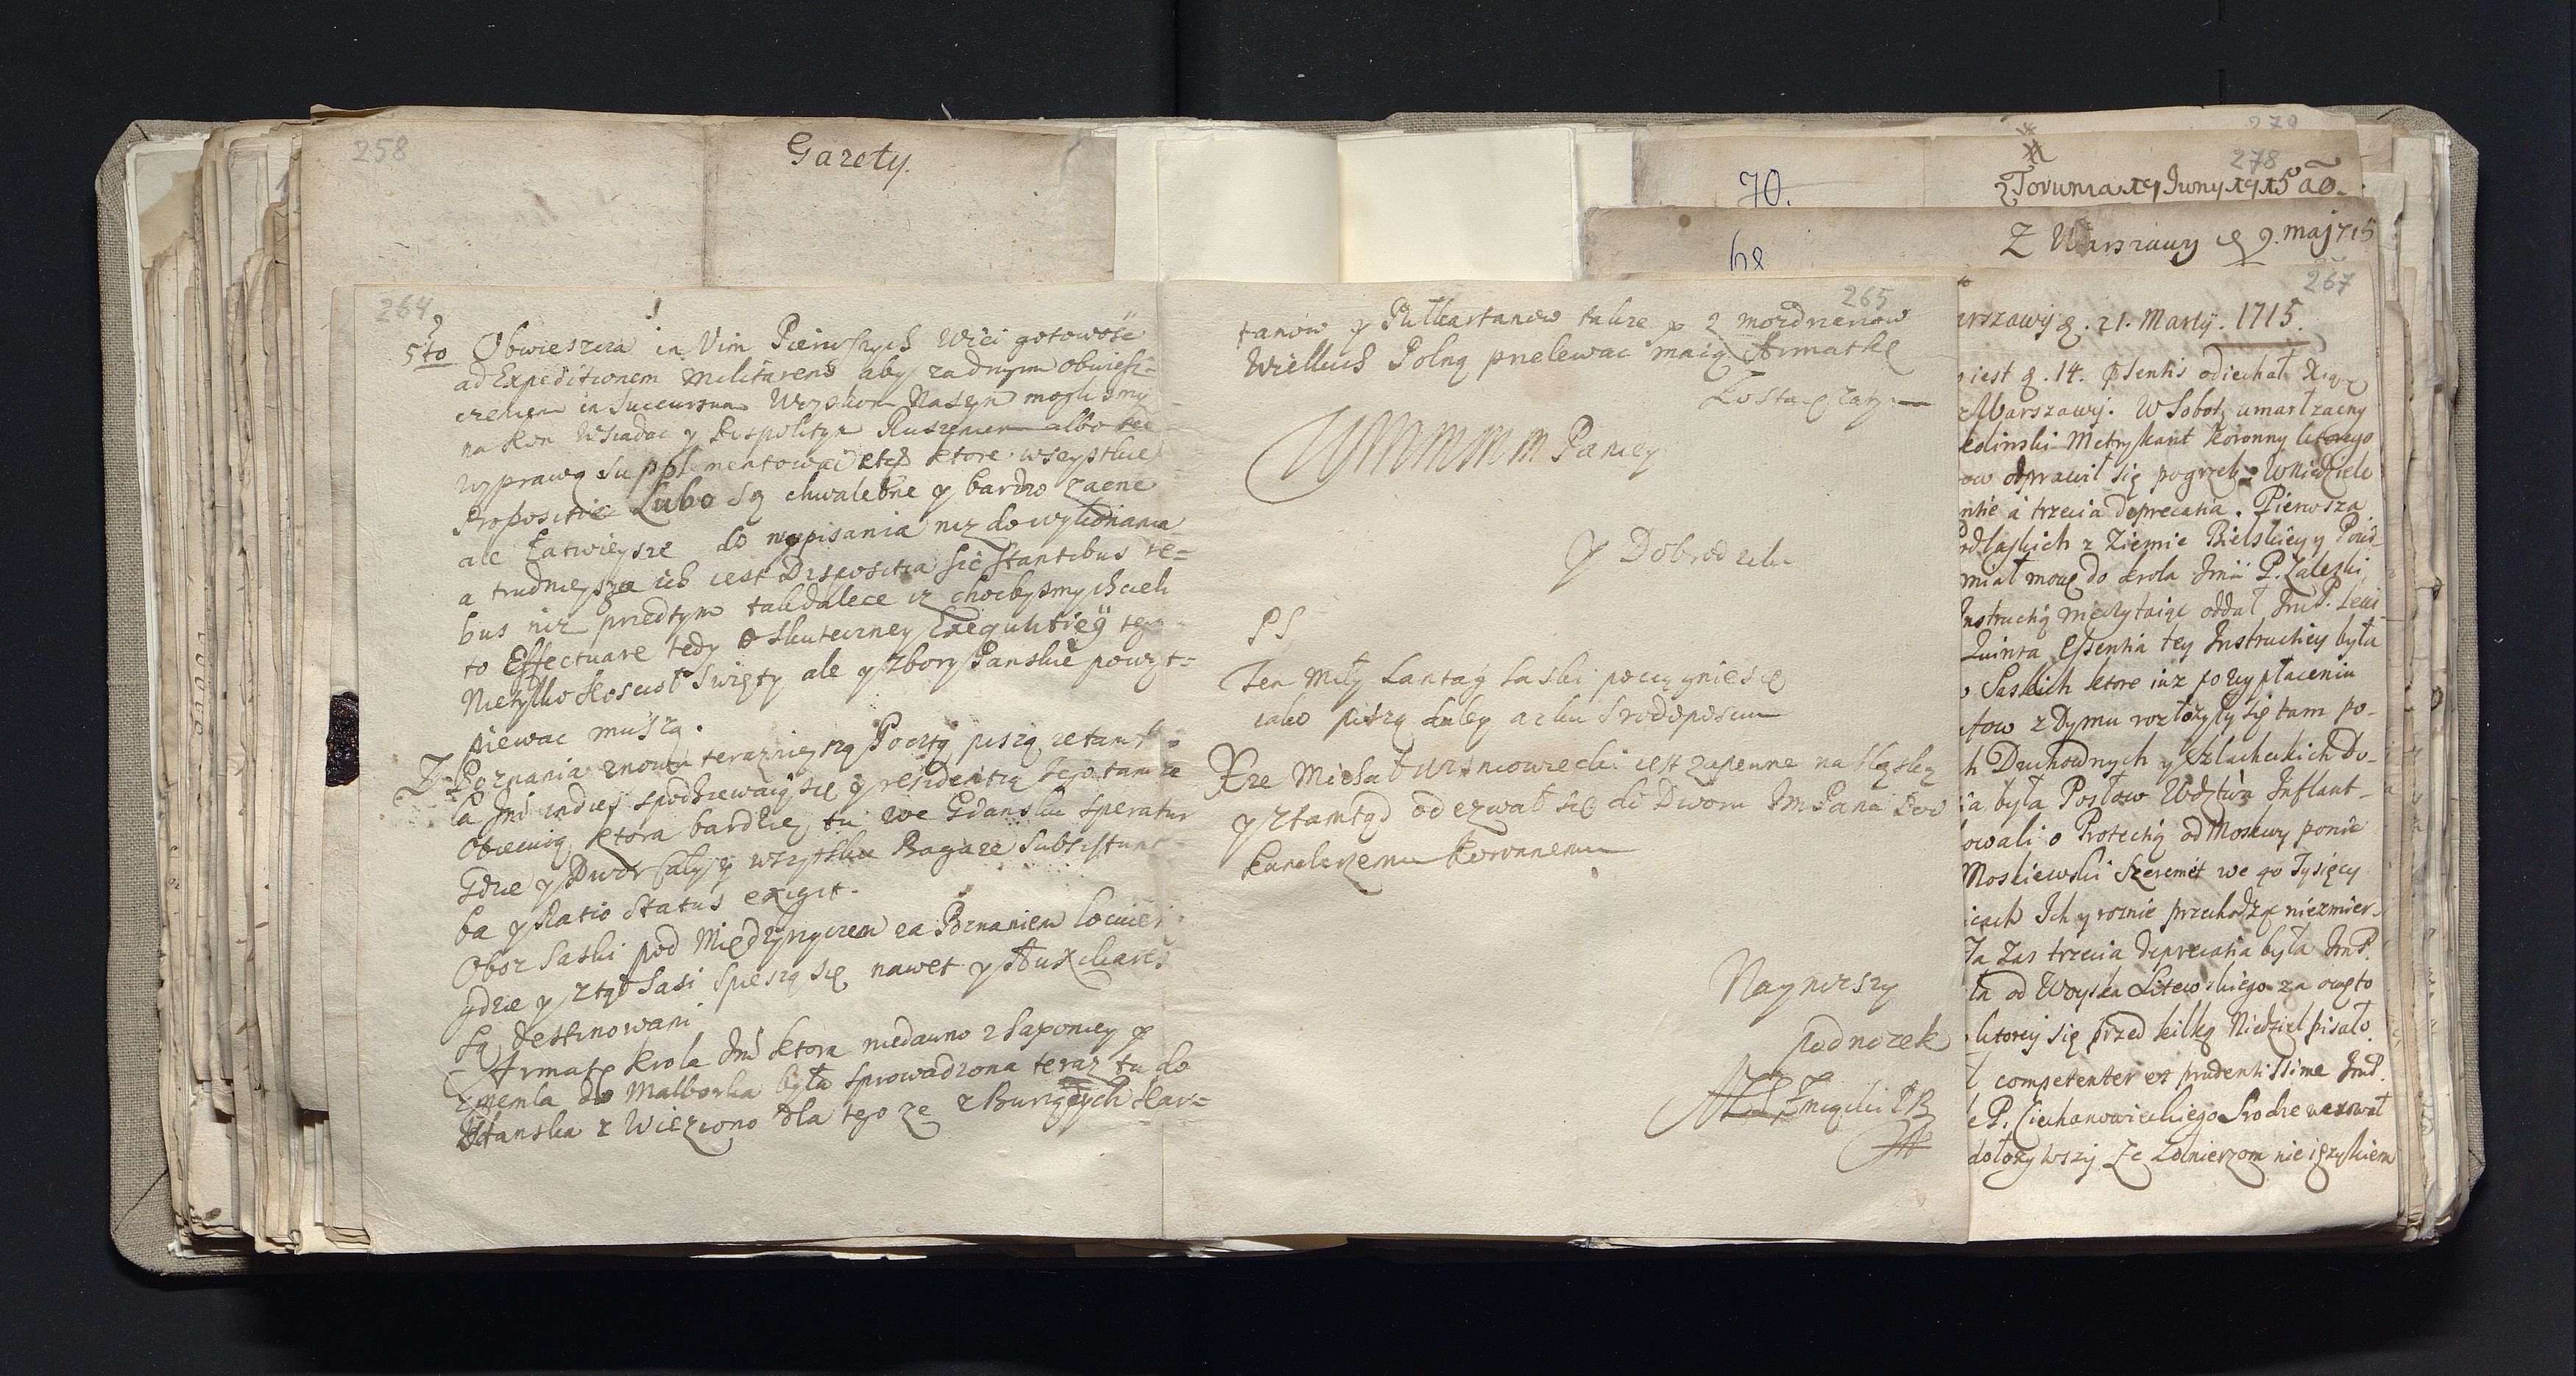 258
Gazety.
70.
279
278
z Torunia 19 Juny 1715 ao.
68
Z Warszawy 9. maj 715
264
5to Obwieszcza in Vim Pierwszych Wici gotowość
ad Expeditionem militarem aby za drugim obwiesz=
czeniem in Succursum Woyskom Naszym moglismy
na kon wsiadac y pospolitym Ruszeniem albo tez
wyprawą supplementować etc ktore wszystkie
Propositie Lubo są chwalebne y bardzo zacne
ale Łatwieysze do napisania niz do wykonania
a trudnieysza ich iest Dispositia sic stantibus re=
bus niz przedtym tak dalece iz chocbysmy chcieli
to Effectuare tedy o skuteczney Exequutiey tego
Nietylko Koscioł Swięty ale y Zbory Panskie powąt=
piewac muszą.
Z Poznania znowu teraznieyszą Pocztą piszą, ze tam
la Jmć indies spodziewaią się y residentią Jego tamze
Obiecuią, ktora bardziey tu we Gdansku speratur
Gdzie y Dwor Cały y wszytkie Bagaze subsistunt
ba y Ratio Status exigit.
Oboz Saski pod Międzyrzyczem za Poznaniem
gdzie y ztąd Sasi spieszą się nawet y Auxiliares
są destinowani
Armate Krola Jmć ktora niedawno z Saxoniey
do Malborka była sprowadzona teraz tu do
Gdanska z Wieziono dla tego ze z Burzących Kar=
265
tanow y Pułkartanow takze y 2 mozdzerzow
Wielkich Polną przelewac maią Armatkę
Zostaię zatym
WMMMMM Paniey
y Dobrodzieki
PS
Ten miły Lantag Saski pociągnie się
iako piszą daley az ku Srodoposciu
Xze Michał Wisniowiecki iest zapewne na Sląsku
y ztamtąd odezwał się do Dworu Im Pana Pod
Kanclerzemu Koronnemu
Nayniszszy
podnozek
267
arszawy d. 21. Marty. 1715.
iest d. 14. psentis odiechał Xiąze
z Warszawy. W Sobotę umarł zacny
koliński Metrykant Koronny ktorego
ow odprawił się pogrzeb. W Niedziele
ntie a trzecia deprecatia. Pierwsza
odlaskich z Ziemie Bielskiey y Powi
miał mowę do Krola Jmci P. Zaleski
Instructią Medytaiąc oddał JmP.
Quinta Essentia tey Instructiey była
Saskich ktore iuz po wypłaceniu
ow z Dymu rozłozyły się tam po-
h Duchownych y Szlacheckich Do-
ia była Posłow Wdztwa Inflant-
owali o Protectią od Moskwy ponie
Moskiewski Szeremet we 40 Tysięcy
icach Ich y roznie przechodząc niezmier.
Ta Zas trzecia Deprecatia była JmP.
ła od Woyska Litewskiego za owę to
ktorey się przed kilką Niedziel pisało.
competenter et prudentissime JmP.
e P. Ciechanowieckiego Srodze wexował
dołozywszy Ze Zołnierzom nie ięzykiem